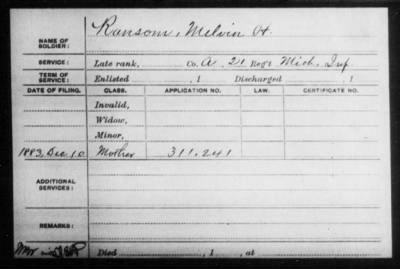 NAME OF SOLDIER: Ransom, Melvin H.
SERVICE: Late rank, Co. A, 21 Reg't Mich. Inf.
TERM OF SERVICE: Enlisted , 1 Discharged , 1
DATE OF FILING. CLASS. APPLICATION NO. LAW. CERTIFICATE NO.
Invalid,
Widow,
Minor,
1883, Dec. 10 Mother 311,241
ADDITIONAL SERVICES:
REMARKS:
Died , 1 , at